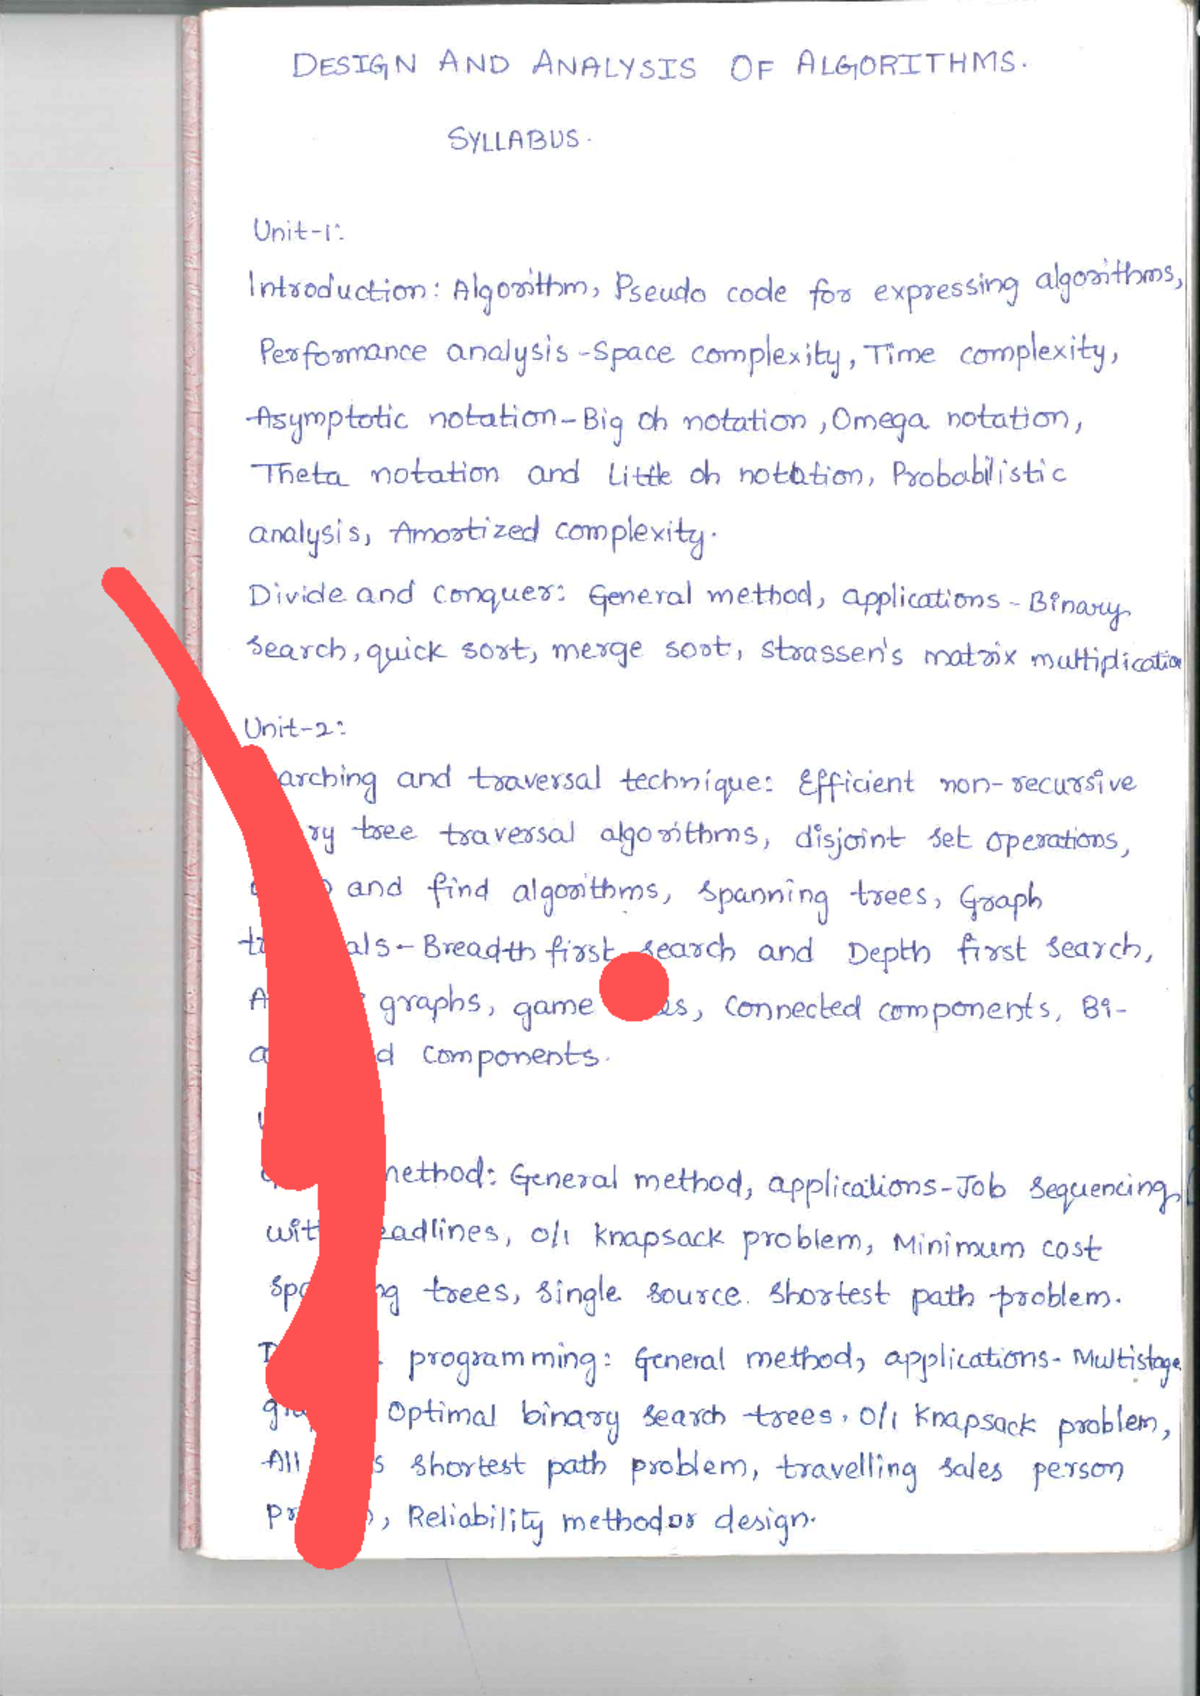 DESIGN AND ANALYSIS OF ALGORITHMS.
SYLLABUS.
Unit-1:
Introduction: Algorithm, Pseudo code for expressing algorithms,
Performance analysis-Space complexity, Time complexity,
Asymptotic notation-Big oh notation, Omega notation,
Theta notation and Little oh notation, Probabilistic
analysis, Amortized complexity.
Divide and conquer: General method, applications-Binary
search, quick sort, merge sort, strassen's matrix multiplication
Unit-2:
and traversal technique: Efficient non-recursive
tree traversal algorithms, disjoint set operations,
and find algorithms, spanning trees, Graph
Breadth first search and Depth first search,
graphs, game connected components, Bi-
components.
method: General method, applications-Job sequencing
0/1 knapsack problem, Minimum cost
trees, single source. shortest path problem.
programming: General method, applications-Multistage
Optimal binary search trees, 0/1 knapsack problem,
All shortest path problem, travelling sales person
, Reliability method or design.